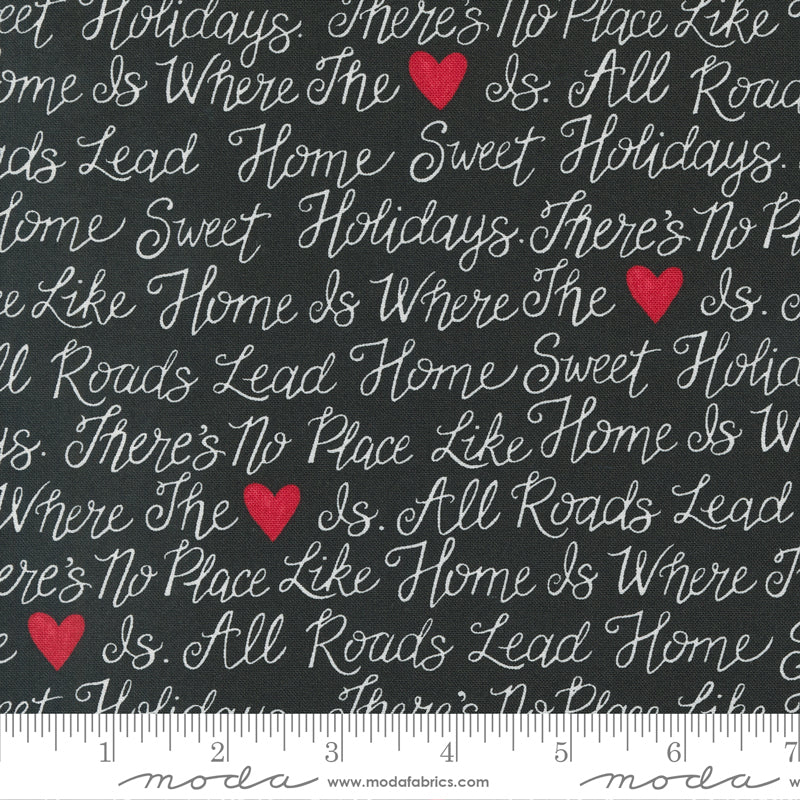 eet Holidays. There's No Place Like
ome Is Where The Is. All Road
ads Lead Home Sweet Holidays.
Home Sweet Holidays. There's No Pl
e Like Home Is Where The Is.
ll Roads Lead Home Sweet Holid
ys. There's No Place Like Home Is W
Where The Is. All Roads Lead
ere's No Place Like Home Is Where T
e Is. All Roads Lead Home S
eet Holidays. There's No Place Like
1 2 3 4 5 6 7
moda www.modafabrics.com moda w